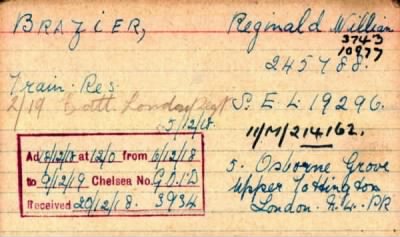 BRAZIER, Reginald William
3743
10977
245788.
Train. Res
2/19 Batt. London Regt S.E.L 19296.
5/12/18. 11/M/214162.
Ad 18/12/18 at 12/0 from 6/12/18
to 9/12/19 Chelsea No. G.D.I'D
Received 20/12/18. 3934
5. Osborne Grove
Upper Tottington
London. N.4. PR